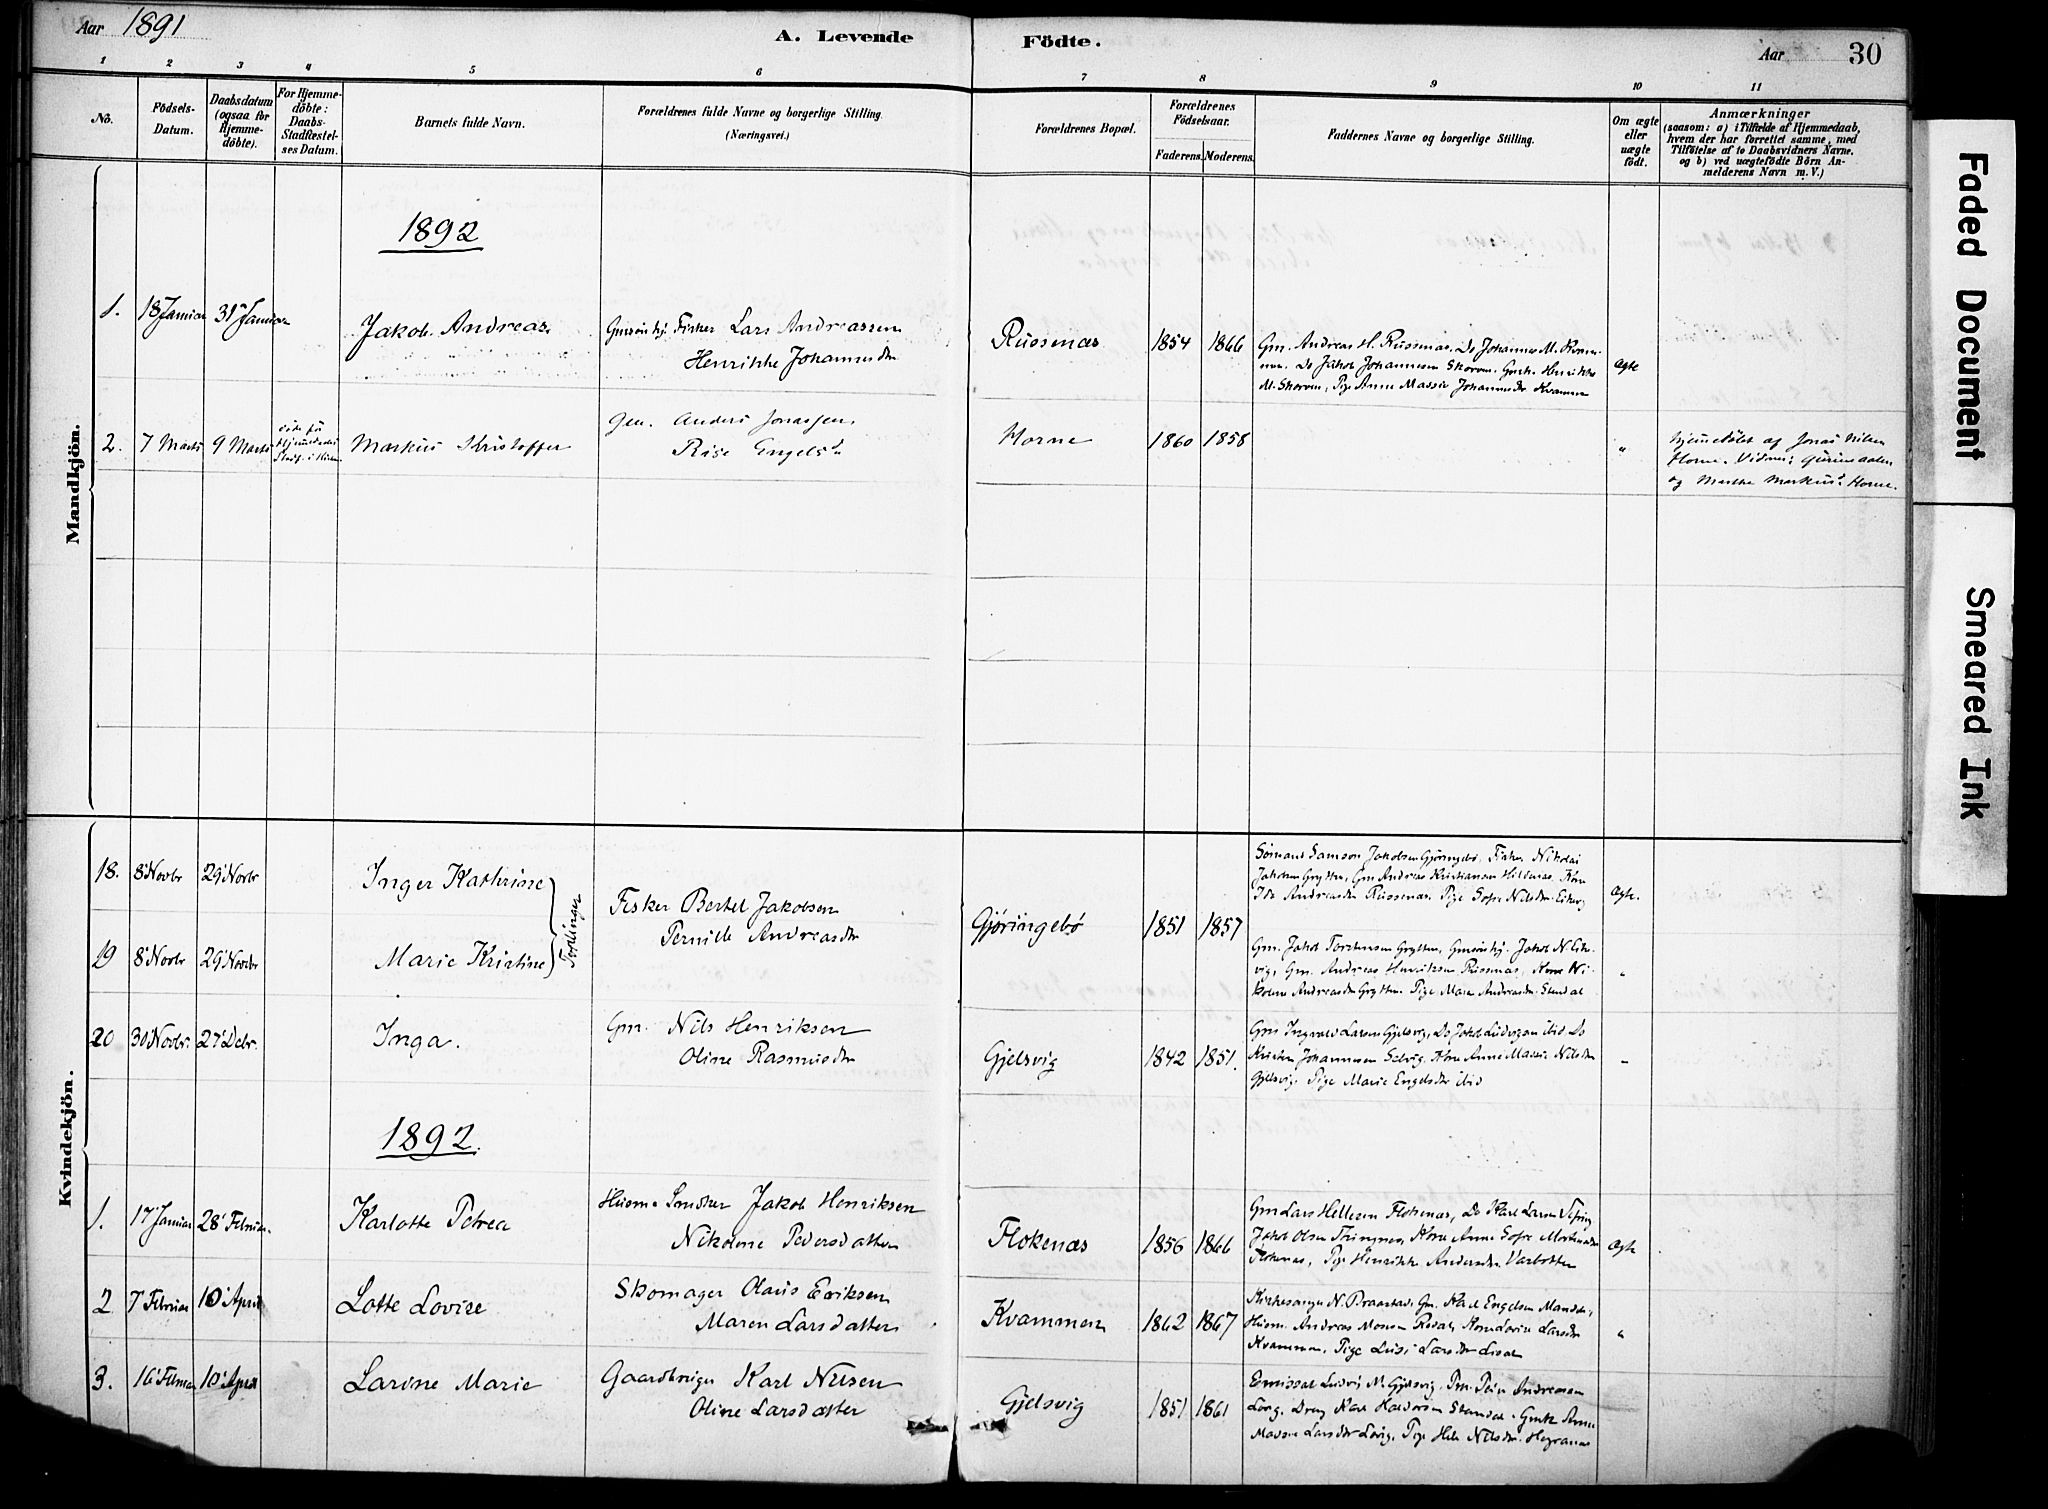 Aar 1891
A. Levende Födte.
Aar 30
1 2 3 4 5 6 7 8 9 10 11
No.
Födsels-Datum.
Daabsdatum (ogsaa for Hjemme-döbte).
For Hjemme-döbte: Daabs-Stadfæstel-ses Datum.
Barnets fulde Navn.
Forældrenes fulde Navne og borgerlige Stilling.
(Næringsvei.)
Forældrenes Bopæl.
Forældrenes Födselsaar.
Faderens. Moderens.
Faddernes Navne og borgerlige Stilling.
Om ægte eller uægte födt.
Anmærkninger
(saasom: a) i Tilfælde af Hjemmedaab,
hvem der har forrettet samme, med
Tilföielse af to Daabsvidners Navne.
og b) ved uægtefödte Börn An-
melderens Navn m.V.)
Mandkjön.
1892
1. 18 Januar 31 Januar Jakob Andreas Fisker Lars Andreassen
Henrikke Johannesdtr
Russenæs 1854 1866
Gm. Andreas H. Russenæs. Do Johannes M. Kvam-
men. Do Jakob Johannesen Skorven. Henrikke
M. Skorven, Pige Anne Massie Johannesdtr Kvammen
Ægte
2. 7 Marts 9 Marts Markus Kristoffer Gm. Anders Jonassen
Engelsd.
Horne 1860 1858 "
Hjemmedøbt af Jonas Nilsen
Horne. Vidner:
og Marthe Markusd. Horne.
Kvindekjön.
18. 8 Novbr 29 Novbr Inger Kathrine
Tvillinger
Fisker Bertel Jakobsen
Pernille Andreasdtr
Gjøringebø 1851 1857
Sømand Samson Jakobsen Gjøringebø, Fisker Nikolai
Jakobsen Grytten, Gm Andreas Kristiansen
Ida Andreasdtr Russenæs. Pige Sofie Nilsdtr.
Ægte.
19 8 Novbr 29 Novbr Marie Kristine
Gm. Jakob Torstensen Grytten, Jakob N.
Gm. Andreas Henriksen Russenæs, Kone Ni-
koline Andreasdtr Grytten. Pige Maren Andreasdtr. Standal
"
20 30 Novbr. 27 Debr. Inga. Gm. Nils Henriksen
Oline Rasmusdtr
Gjelsvig 1842 1851.
Gm Ingvald Larsen Gjelsvig, Do Jakob Ludvigsen ibid. Do
Kristen Johannesen Selvig. Kone Anne Massie Nilsdtr
Gjelsvig. Pige Marie Engelsdtr ibid
"
1892.
1. 17 Januar 28 Februar. Karlotte Petrea Jakob Henriksen
Nikoline Pedersdatter
Flokenæs 1856 1866
Gm Lars Hellesen Flokenæs, Do Karl Larsen
Jakob Olsen Kone Anne Sofie
Flokenæs, Pige Henrikke Andersdtr. Varbotten
Ægte
2 7 Februar 10 April Lotte Lovise Skomager Olaus Eriksen
Maren Larsdatter
Kvammen 1862 1867
Kirkesanger N. Braarstad. Gm. Karl Engelsen
Andreas Monsen Kone Lovise Larsdtr
Kvammen, Pige Larsdtr
"
3. 16 Februar 10 April Larine Marie Gaardbruger Karl Nilsen
Oline Larsdatter
Gjelsvig 1851 1861
Emissær Ludvig M. Gjelsvig. Andreassen
Dreng Karl Standal. Anne
Massie Larsdtr Pige Nilsdtr.
Faded Document
Smeared Ink